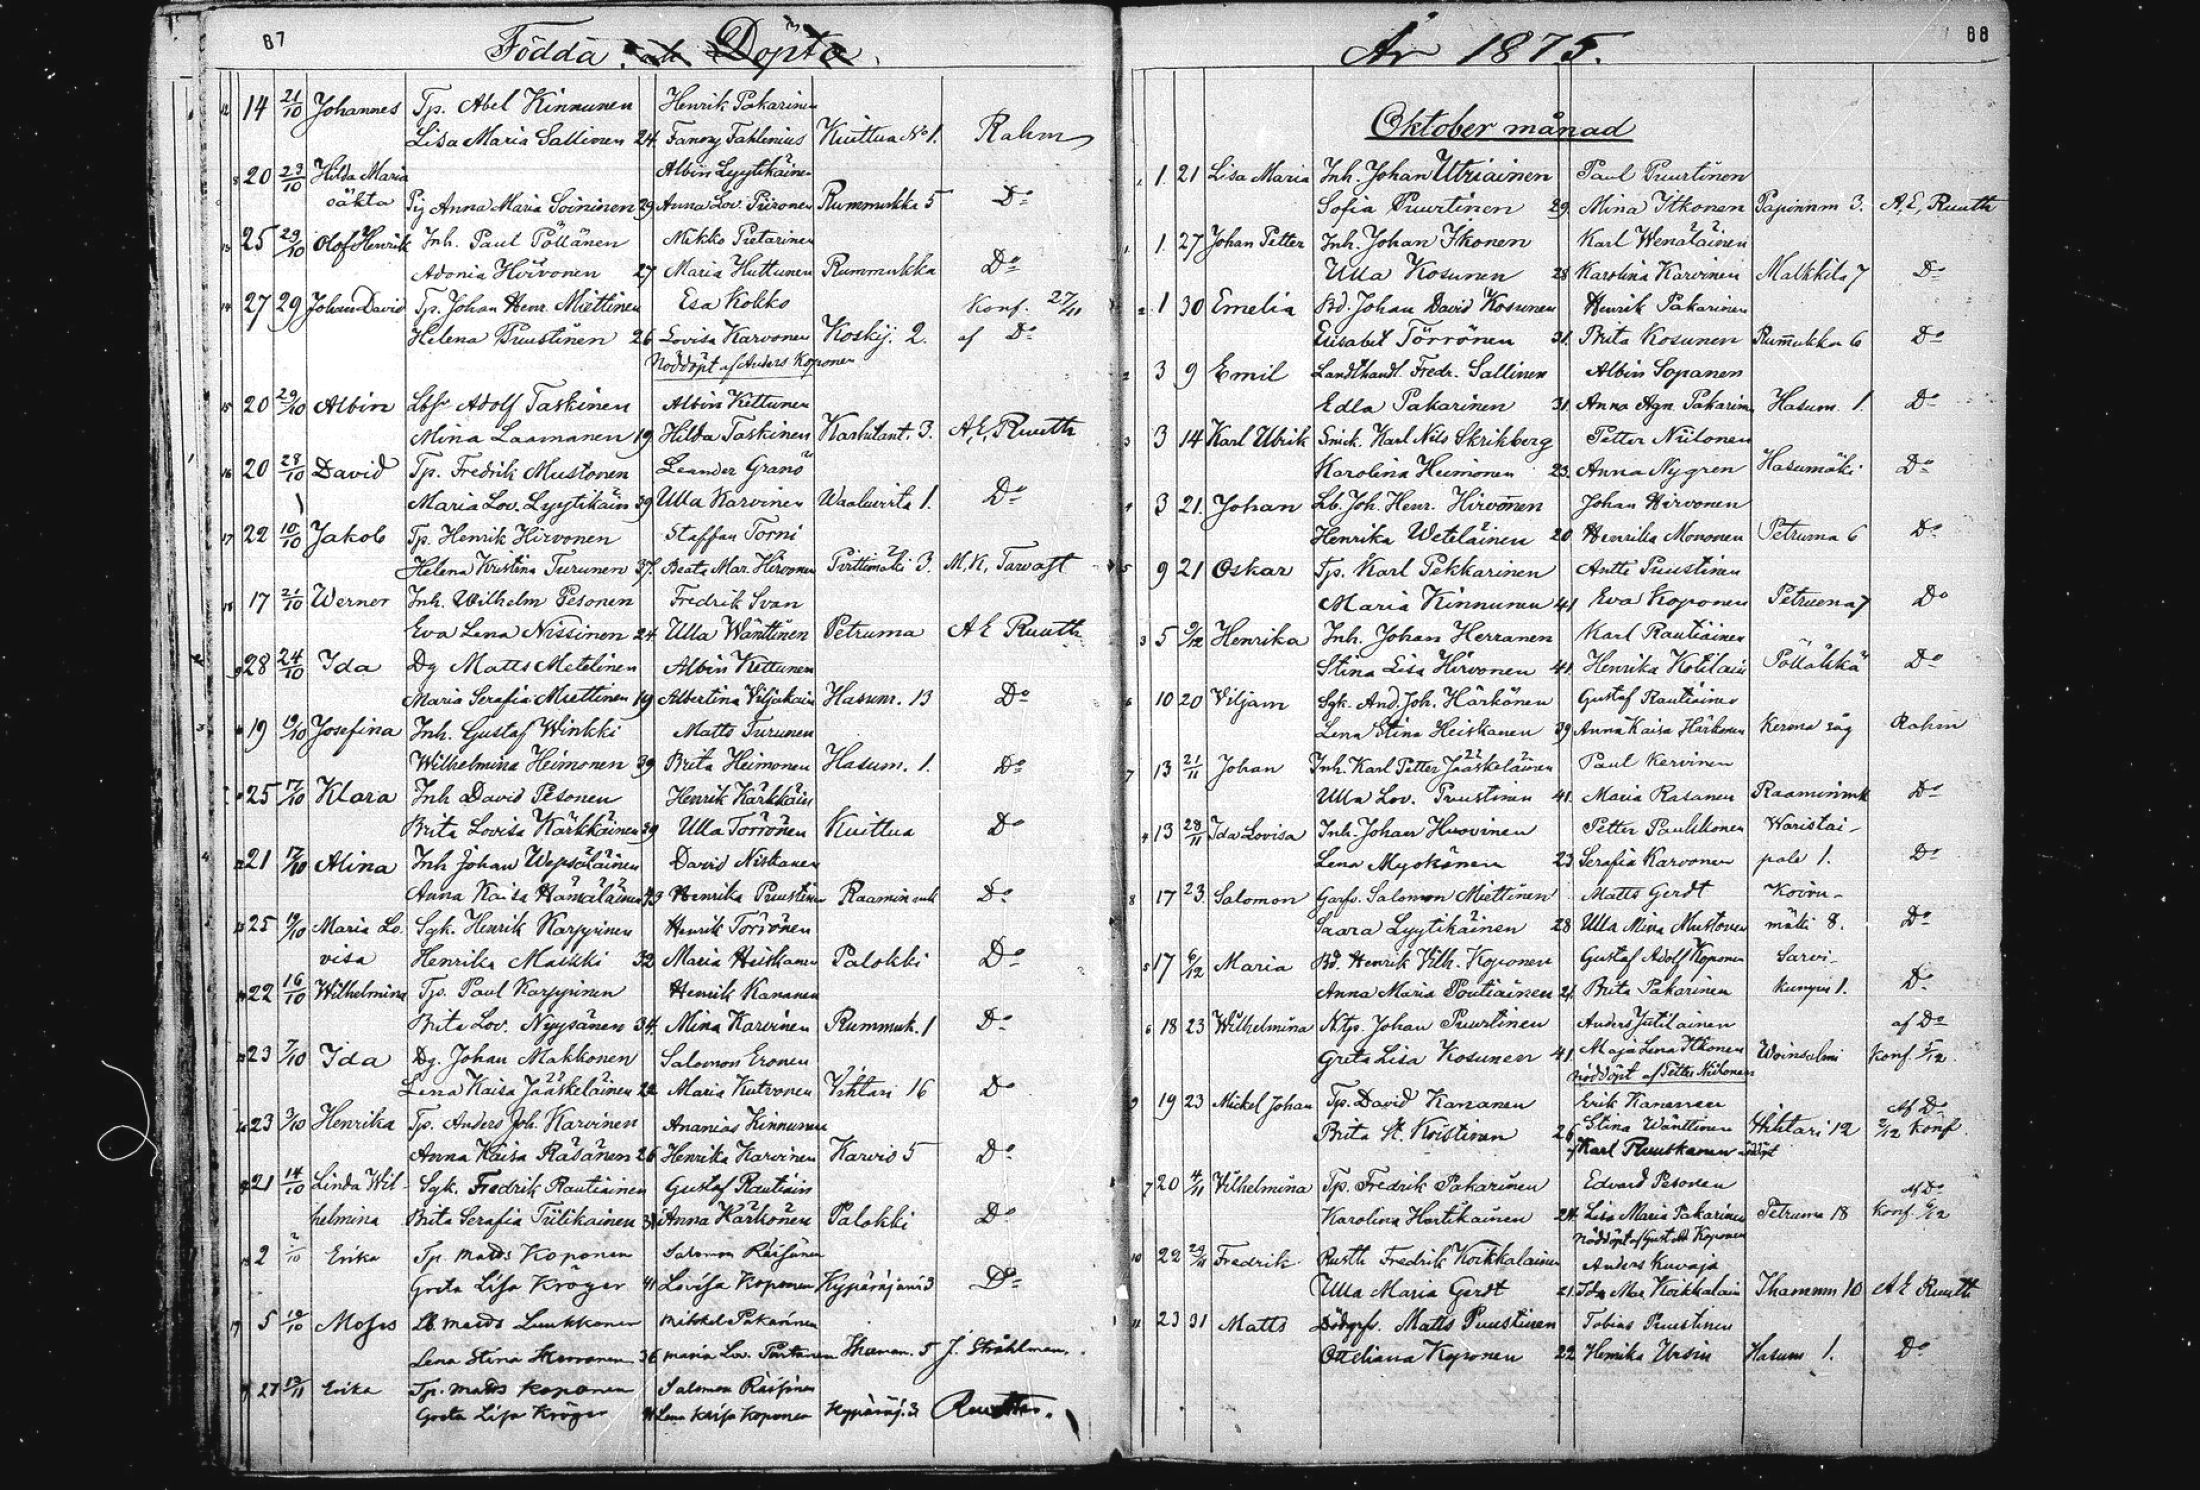 87
Födda och Döpta.
14 21/10 Johannes Tp. Abel Kinnunen Henrik Pakarinen
Lisa Maria Sallinen 24 Fanny Fahlenius Kuittua No 1. Rahm
20 23/10 Hilda Maria Albin Lyytikäinen
oäkta Pig Anna Maria Soininen 29 Anna Lov. Piironen Rummukka 5 Do
25 29/10 Olof Henrik Inh. Paul Pöllänen Mikko Pietarinen
Adonia Hirvonen 27 Maria Huttunen Rummukka Do
27 29 Johan David Tp. Johan Henr. Miettinen Esa Kokko Konf. 27/11
Helena Puustinen 26 Lovisa Karvonen Koskij. 2. af Do
Nöddöpt af Anders Koponen
20 29/10 Albin Lbfr Adolf Taskinen Albin Kettunen
Mina Laamanen 19 Hilda Taskinen 3. A, E, Ruuth
20 28/10 David Tp. Fredrik Mustonen Leander Granö
Maria Lov. Lyytikäin 39 Ulla Karvinen Waaluvirta 1. Do
22 10/10 Jakob Tp. Henrik Hirvonen Staffan Torni
Helena Kristina Turunen 37. Beata Mar. Hirvonen Pirttimäki 3. M. K. Tavast
17 21/10 Werner Inh. Wilhelm Pesonen Fredrik Svan
Eva Lena Nissinen 24 Ulla Wänttinen Petruma A E Ruuth
28 24/10 Ida Dg Matts Metelinen Albin Kettunen
Maria Serafia Miettinen 19 Albertina Viljakain Hasum. 13 Do
19 19/10 Josefina Inh. Gustaf Winkki Matts Turunen
Wilhelmina Heimonen 39 Brita Heimonen Hasum. 1. Do
25 17/10 Klara Inh David Pesonen Henrik Kärkkäin
Brita Lovisa Kärkkäinen 39 Ulla Törrönen Kuittua Do
21 17/10 Alina Inh Johan Wepsäläinen David Niskanen
Anna Kaisa Hämäläinen 43 Henrika Puustinen Raamin Do
25 19/10 Maria Lo- Sgk. Henrik Karppinen Henrik Törrönen
visa Henrika Maikki 32 Maria Heiskanen Palokki Do
22 16/10 Wilhelmina Tp. Paul Karppinen Henrik Kananen
Brita Lov. Nyyssänen 34. Mina Karvinen Rummuk. 1 Do
23 7/10 Ida Dg. Johan Makkonen Salomon Eronen
Lena Kaisa Jääskeläinen 22 Maria Kutvonen Vihtari 16 Do
23 3/10 Henrika Tp. Anders Joh. Karvinen Ananias Kinnunen
Anna Kaisa Räsänen 26 Henrika Karvinen Karvio 5 Do
21 14/10 Linda Wil- Sgk. Fredrik Rautiainen Gustaf Rautiain
helmina Brita Serafia Tiilikainen 31 Anna Härkönen Palokki Do
2 /10 Erika Tp. Matts Koponen Salomon Räisänen
Greta Lisa Kröger 41 Lovisa Koponen Kypäräjärvi 3 Do
5 10/10 Moses Lb. Matts Luukkonen Mikkel Pakarinen
Lena Stina 36 Maria Lov. 5 J. Ståhlman.
27 12/11 Erika Tp. Matts Koponen Salomon Räisänen
Greta Lisa Kröger 41 Lena Kaisa Koponen Kypäräj. 3 Ruuth.
88
År 1875.
Oktober månad
1. 21 Lisa Maria Inh. Johan Utriainen Paul Puurtinen
Sofia Puurtinen 29. Mina Itkonen Papinnm 3. A, E, Ruuth
1. 27 Johan Petter Inh. Johan Ikonen Karl Wenäläinen
Ulla Kosunen 28 Karolina Karvinen Malkkila 7 Do
1 30 Emelia Bd. Johan David Kosunen Henrik Pakarinen
Elisabet Törrönen 31. Brita Kosunen Rummukka 6 Do
3 9 Emil Landthandl. Fredr. Sallinen Albin Sopanen
Edla Pakarinen 31. Anna Agn. Pakarinen Hasum. 1. Do
3 14 Karl Ulrik Snick. Karl Nils Skrikberg Petter Niilonen
Karolina Heimonen 23. Anna Nygren Hasumäki Do
3 21. Johan Lb. Joh. Henr. Hirvonen Johan Hirvonen
Henrika Weteläinen 20 Henrika Mononen Petruma 6 Do
9 21 Oskar Tp. Karl Pekkarinen Antti Puustinen
Maria Kinnunen 41 Eva Koponen Petruma 7 Do
5 9/12 Henrika Inh. Johan Herranen Karl Rautiainen
Stina Lisa Hirvonen 41. Henrika Kotilain Pölläkkä Do
10 20 Viljam Sgk. And. Joh. Härkönen Gustaf Rautiainen
Lena Stina Heiskanen 39 Anna Kaisa Härkönen Kerma såg Rahm
13 21/11 Johan Inh. Karl Petter Jääskeläinen Paul Kervinen
Ulla Lov. Puustinen 41. Maria Rasanen Do
13 28/11 Ida Lovisa Inh. Johan Huovinen Petter Paukkonen Waristai-
Lena Myökänen 23 Serafia Karvonen pale 1. Do
17 23. Salomon Garfv. Salomon Miettinen Matts Gerdt Koivu-
Saara Lyytikäinen 28 Ulla Mina Mustonen mäki 8. Do
17 6/12 Maria Bd. Henrik Vilh. Koponen Gustaf Adolf Koponen Sarvi-
Anna Maria Poutiainen 21. Brita Pakarinen kumpu 1. Do
18 23 Wilhelmina Ntp. Johan Puurtinen Anders Jutilainen af Do
Greta Lisa Kosunen 41. Maja Lena Itkonen Woinsalmi Konf. 5/12.
nöddöpt af Petter Niilonen
19 23 Mickel Johan Tp. David Kananen Erik Kananen Af Do
Brita St. Koistinen 26 Stina Wänttinen Wihtari 12 2/12 Konf
af Karl Ruuskanen nöddöpt
20 4/11 Vilhelmina Tp. Fredrik Pakarinen Edvard Pesonen Af Do
Karolina Hartikainen 24. Lisa Maria Pakarinen Petruma 18 Konf 6/12
Nöddöpt af Gust. Ad. Koponen
22 29/11 Fredrik Rusth Fredrik Koikkalainen Anders Kuvaja
Ulla Maria Gerdt 21. Ida Mar. Koikkalain Ihamnm 10 A E Ruuth
23 31 Matts Matts Puustinen Tobias Puustinen
Ottiliana Koponen 22 Henrika Ursin Hasum 1. Do